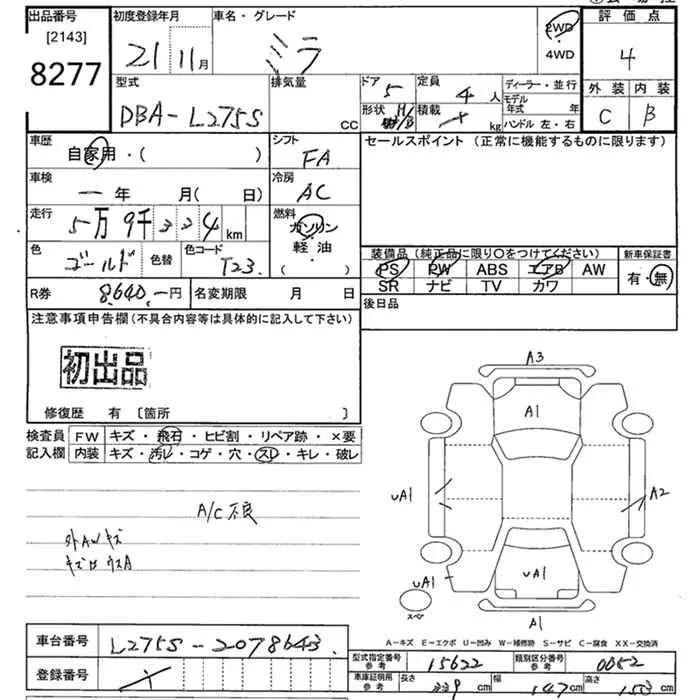 出品番号 初度登録年月 車名・グレード 評価点
[2143]
8277 21 11月 ミラ 2WD・4WD 4
外装 内装
C B
型式 排気量 ドア 5 定員 4人 ディーラー・並行
DBA-L275S CC 形状 H/B 積載 kg モデル年式 年
ハンドル 左・右
車歴 シフト セールスポイント(正常に機能するものに限ります)
自家用・( ) FA
車検 冷房
一年 月( 日) AC
走行 燃料
5万9千334km ガソリン
軽油
( )
色 ゴールド 色替 色コード T23.
装備品(純正品に限り○をつけてください) 新車保証書
PS PW ABS エアB AW 有・無
SR ナビ TV カワ
R券 8,640.-円 名変期限 月 日 後日品
注意事項申告欄(不具合内容等は具体的に記入して下さい)
初出品
修復歴 有 [箇所 ]
検査員 FW キズ・飛石・ヒビ割・リペア跡・×要
記入欄 内装 キズ・汚レ・コゲ・穴・スレ・キレ・破レ
A/C不良
外AWキズ
キズはウスA
A3
A1
uA1
A2
uA1
uA1
スペア
A1
A-キズ E-エクボ U-凹み W-補修跡 S-サビ C-腐食 XX-交換済
車台番号 L275S-2078643.
登録番号
型式指定番号 参考 15622 類別区分番号 参考 0052
車庫証明用 参考 長さ 339cm 幅 147cm 高さ 153cm